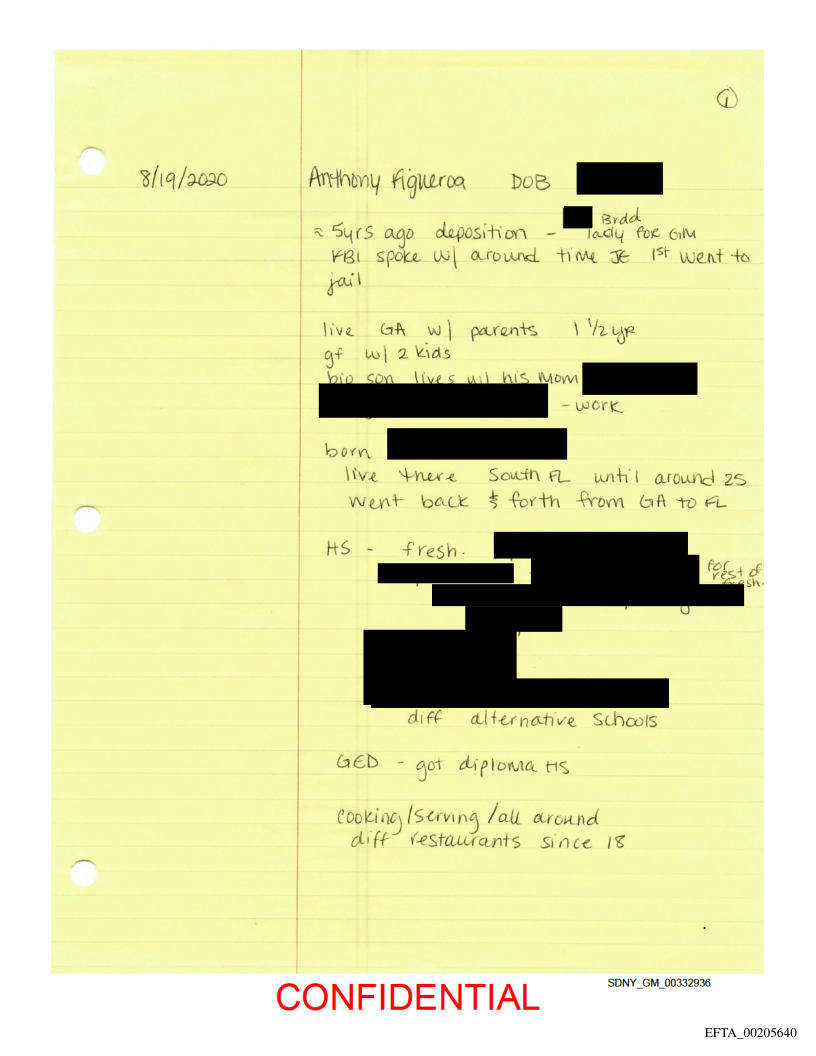 ①
8/19/2020 Anthony Figueroa DOB
Brad
≈ 5yrs ago deposition - lady for GM
FBI spoke w/ around time JE 1st went to
jail
live GA w/ parents 1 1/2 yr
gf w/ 2 kids
bio son lives w/ his mom
- work
born
live there South FL until around 25
went back & forth from GA to FL
HS - fresh.
for
rest of
fresh.
diff alternative schools
GED - got diploma HS
cooking/serving/all around
diff restaurants since 18
SDNY_GM_00332936
CONFIDENTIAL
EFTA_00205640